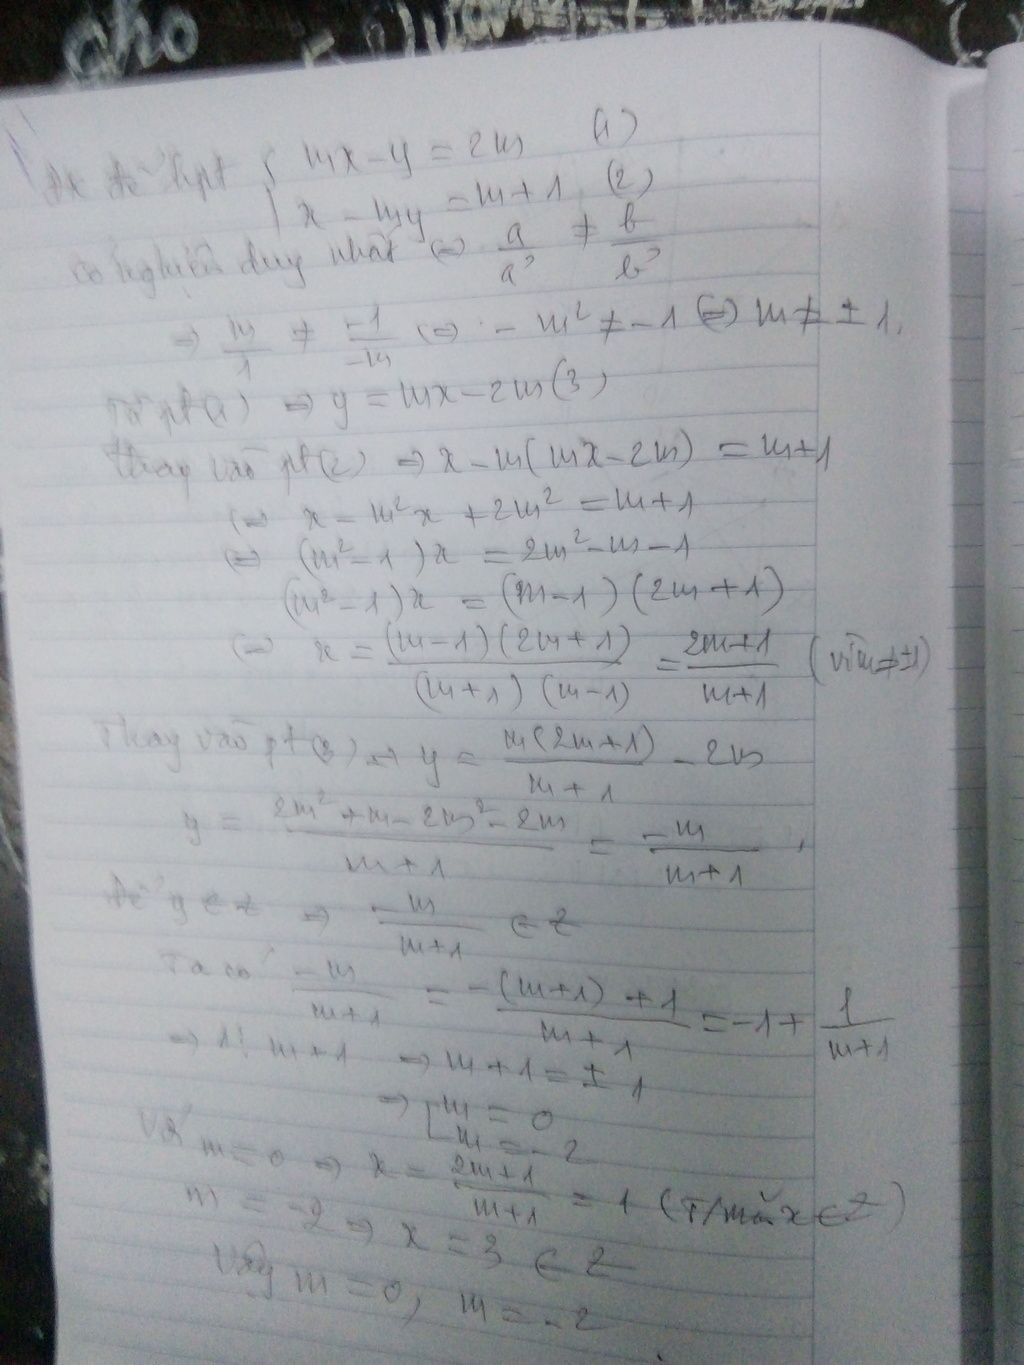 cho
Đk để hpt { mx - y = 2m (1)
x - my = m+1 (2)
có nghiệm duy nhất ⇔ a/a' ≠ b/b'
⇒ m/1 ≠ -1/-m ⇔ - m² ≠ -1 ⇔ m ≠ ± 1.
Từ pt(1) ⇒ y = mx - 2m (3)
thay vào pt(2) ⇒ x - m(mx - 2m) = m+1
⇔ x - m²x + 2m² = m+1
⇔ (m² - 1)x = 2m² - m - 1
(m² - 1)x = (m-1)(2m+1)
⇔ x = (m-1)(2m+1)/(m+1)(m-1) = 2m+1/m+1 (vì m≠±1)
Thay vào pt(3) ⇒ y = m(2m+1)/m+1 - 2m
y = 2m² + m - 2m² - 2m/m+1 = -m/m+1 .
Để y ∈ Z ⇒ -m/m+1 ∈ Z
Ta có -m/m+1 = -(m+1)+1/m+1 = -1 + 1/m+1
⇒ 1⋮ m+1 ⇒ m+1 = ± 1
⇒ [ m = 0
m = -2
Với m=0 ⇒ x = 2m+1/m+1 = 1 (T/mãn x ∈ Z)
m = -2 ⇒ x = 3 ∈ Z
Vậy m = 0, m = -2